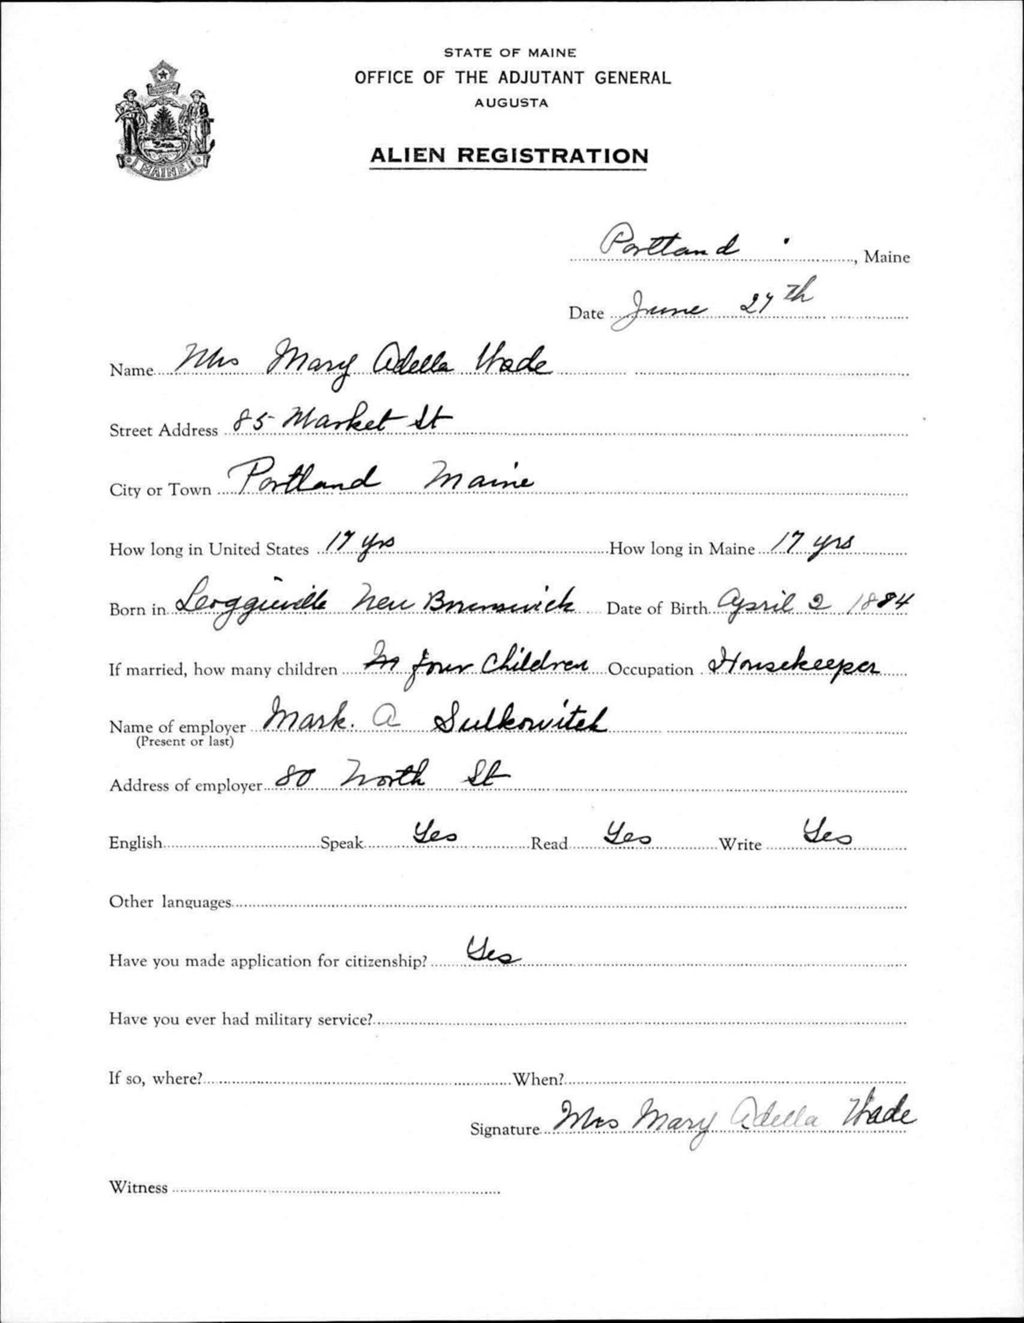 STATE OF MAINE
OFFICE OF THE ADJUTANT GENERAL
AUGUSTA
ALIEN REGISTRATION
MAINE
Portland, Maine
Date June 27th
Name Mrs Mary Adella Wade
Street Address 85 Market St
City or Town Portland Maine
How long in United States 17 yrs How long in Maine 17 yrs
Born in Loggieville New Brunswick Date of Birth April 2 1884
If married, how many children four Children Occupation Housekeeper
Name of employer Mark. A Sulkowitch
(Present or last)
Address of employer 80 North St
English Speak Yes Read Yes Write Yes
Other languages
Have you made application for citizenship? Yes
Have you ever had military service?
If so, where? When?
Signature Mrs Mary Adella Wade
Witness